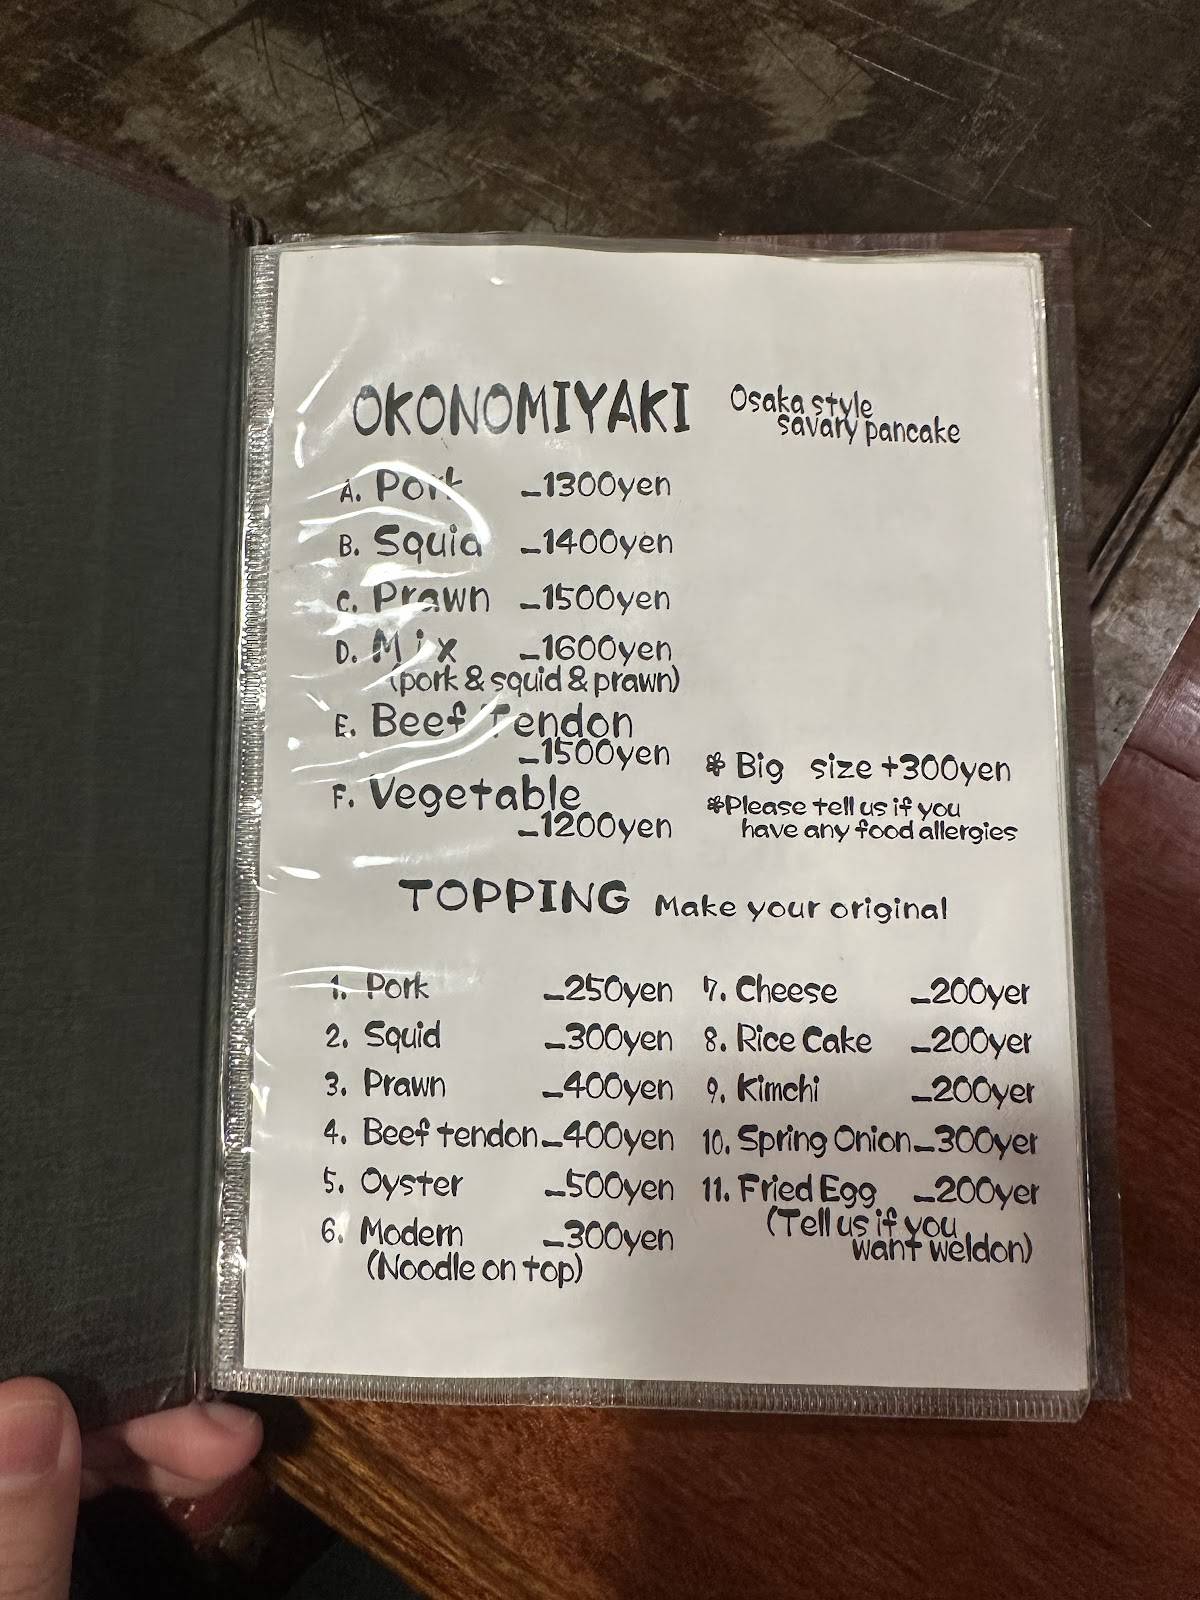 OKONOMIYAKI Osaka style
savary pancake
A. Pork _1300yen
B. Squid _1400yen
C. Prawn _1500yen
D. Mix _1600yen
(pork & squid & prawn)
E. Beef Tendon
_1500yen
F. Vegetable
_1200yen
* Big size +300yen
*Please tell us if you
have any food allergies
TOPPING Make your original
1. Pork _250yen
2. Squid _300yen
3. Prawn _400yen
4. Beef tendon_400yen
5. Oyster _500yen
6. Modern _300yen
(Noodle on top)
7. Cheese _200yer
8. Rice Cake _200yer
9. Kimchi _200yer
10. Spring Onion_300yer
11. Fried Egg _200yer
(Tell us if you
want weldon)